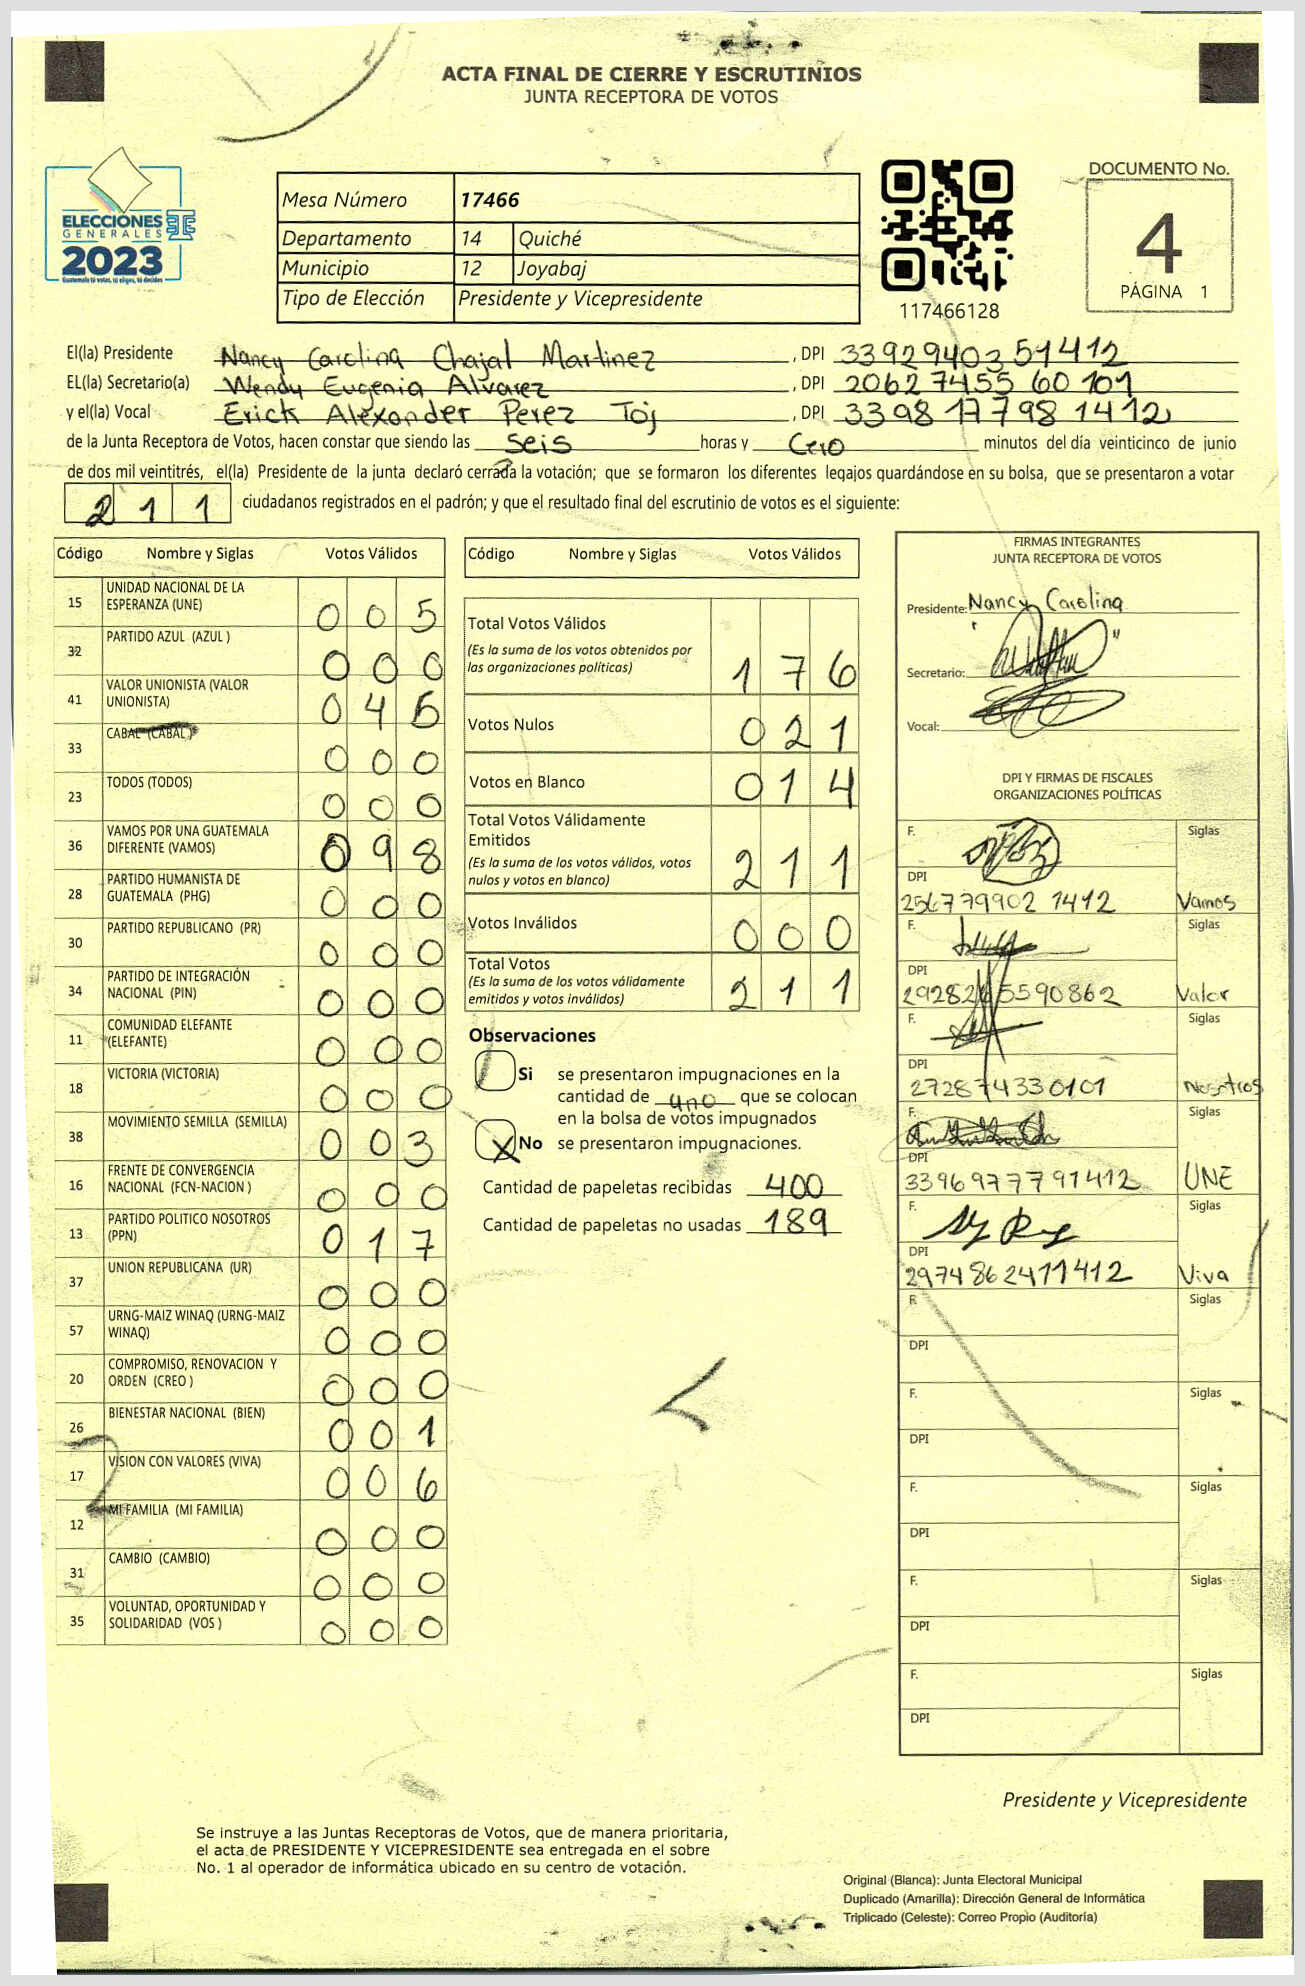 ACTA FINAL DE CIERRE Y ESCRUTINIOS
JUNTA RECEPTORA DE VOTOS
ELECCIONES
GENERALES
2023
Guatemala tú votas, tú eliges, tú decides
Mesa Número 17466
Departamento 14 Quiché
Municipio 12 Joyabaj
Tipo de Elección Presidente y Vicepresidente
117466128
DOCUMENTO No.
4
PÁGINA 1
El(la) Presidente Nancy Carolina Chajal Martinez , DPI 3392940351412
EL(la) Secretario(a) Wendy Eugenia Alvarez , DPI 2062745560101
y el(la) Vocal Erick Alexander Perez Toj , DPI 3398177981412
de la Junta Receptora de Votos, hacen constar que siendo las seis horas y Cero minutos del día veinticinco de junio
de dos mil veintitrés, el(la) Presidente de la junta declaró cerrada la votación; que se formaron los diferentes legajos guardándose en su bolsa, que se presentaron a votar
211 ciudadanos registrados en el padrón; y que el resultado final del escrutinio de votos es el siguiente:
Código Nombre y Siglas Votos Válidos
15 UNIDAD NACIONAL DE LA ESPERANZA (UNE) 005
32 PARTIDO AZUL (AZUL ) 000
41 VALOR UNIONISTA (VALOR UNIONISTA) 045
33 CABAL (CABAL ) 000
23 TODOS (TODOS) 000
36 VAMOS POR UNA GUATEMALA DIFERENTE (VAMOS) 098
28 PARTIDO HUMANISTA DE GUATEMALA (PHG) 000
30 PARTIDO REPUBLICANO (PR) 000
34 PARTIDO DE INTEGRACIÓN NACIONAL (PIN) 000
11 COMUNIDAD ELEFANTE (ELEFANTE) 000
18 VICTORIA (VICTORIA) 000
38 MOVIMIENTO SEMILLA (SEMILLA) 003
16 FRENTE DE CONVERGENCIA NACIONAL (FCN-NACION ) 000
13 PARTIDO POLITICO NOSOTROS (PPN) 017
37 UNION REPUBLICANA (UR) 000
57 URNG-MAIZ WINAQ (URNG-MAIZ WINAQ) 000
20 COMPROMISO, RENOVACION Y ORDEN (CREO ) 000
26 BIENESTAR NACIONAL (BIEN) 001
17 VISION CON VALORES (VIVA) 006
12 MI FAMILIA (MI FAMILIA) 000
31 CAMBIO (CAMBIO) 000
35 VOLUNTAD, OPORTUNIDAD Y SOLIDARIDAD (VOS ) 000
Código Nombre y Siglas Votos Válidos
Total Votos Válidos 176
(Es la suma de los votos obtenidos por
las organizaciones políticas)
Votos Nulos 021
Votos en Blanco 014
Total Votos Válidamente
Emitidos 211
(Es la suma de los votos válidos, votos
nulos y votos en blanco)
Votos Inválidos 000
Total Votos 211
(Es la suma de los votos válidamente
emitidos y votos inválidos)
Observaciones
Si se presentaron impugnaciones en la
cantidad de uno que se colocan
en la bolsa de votos impugnados
X No se presentaron impugnaciones.
Cantidad de papeletas recibidas 400
Cantidad de papeletas no usadas 189
FIRMAS INTEGRANTES
JUNTA RECEPTORA DE VOTOS
Presidente: Nancy Carolina
Secretario:
Vocal:
DPI Y FIRMAS DE FISCALES
ORGANIZACIONES POLÍTICAS
F. Siglas
DPI
2567799021412 Vamos
F. Siglas
DPI
Valor
F. Siglas
DPI
272874330101 Nosotros
F. Siglas
DPI
3396977791412 UNE
F. Siglas
DPI
2974862411412 Viva
F. Siglas
DPI
F. Siglas
DPI
F. Siglas
DPI
F. Siglas
DPI
F. Siglas
DPI
Presidente y Vicepresidente
Se instruye a las Juntas Receptoras de Votos, que de manera prioritaria,
el acta de PRESIDENTE Y VICEPRESIDENTE sea entregada en el sobre
No. 1 al operador de informática ubicado en su centro de votación.
Original (Blanca): Junta Electoral Municipal
Duplicado (Amarilla): Dirección General de Informática
Triplicado (Celeste): Correo Propio (Auditoría)